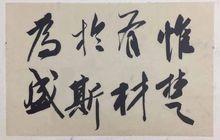 惟楚
有材
於斯
為盛